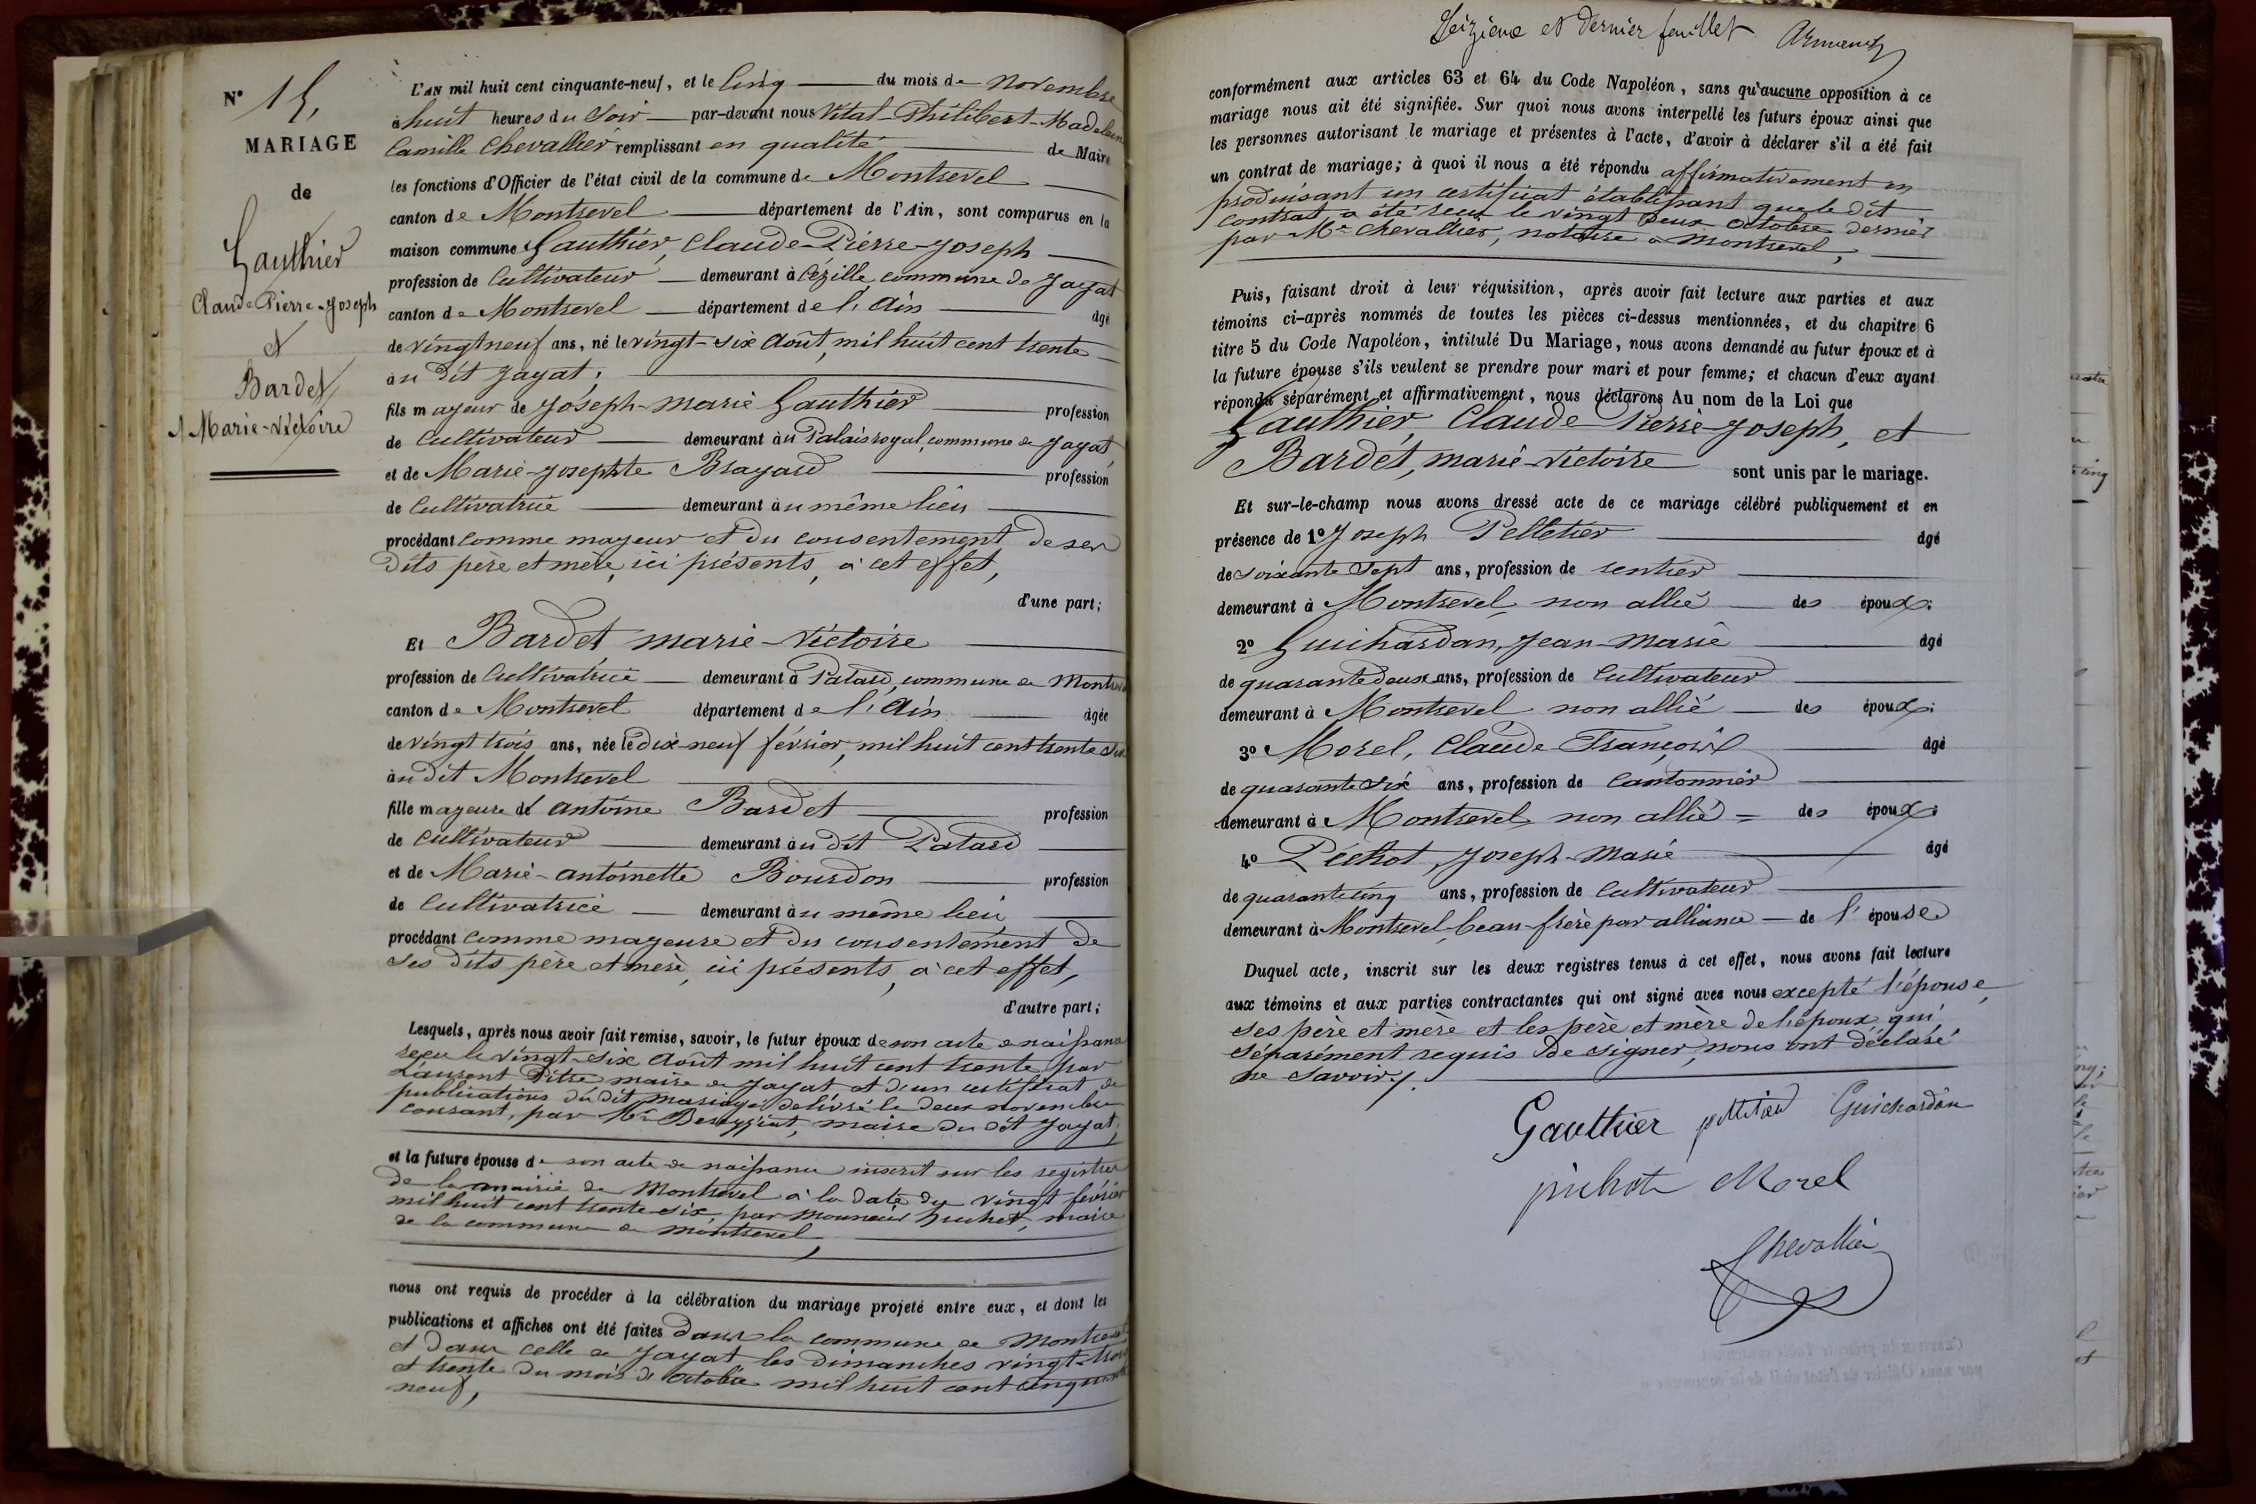 N° 15,
MARIAGE
de
Gauthier
Claude Pierre-Joseph
et
Bardet
Marie-Victoire
L'AN mil huit cent cinquante-neuf, et le Cinq du mois de Novembre
à huit heures du Soir par-devant nous Vital-Philibert-Madelain
Camille Chevallier remplissant en qualité de Maire
les fonctions d'Officier de l'état civil de la commune de Montrevel
canton de Montrevel département de l'Ain, sont comparus en la
maison commune Gauthier, Claude-Pierre-Joseph
profession de Cultivateur demeurant à Cézille commune de Jayat
canton de Montrevel département de l'Ain âgé
de vingt neuf ans, né le vingt-six Août, mil huit cent trente
au dit Jayat,
fils majeur de Joseph-Marie Gauthier profession
de Cultivateur demeurant au Palais royal, commune de Jayat,
et de Marie-Josephte Brayard profession
de Cultivatrice demeurant au même lieu
procédant comme majeur et du consentement de ses
dits père et mère, ici présents, à cet effet,
d'une part;
Et Bardet, Marie-Victoire
profession de Cultivatrice demeurant à Patard, commune de Montrevel
canton de Montrevel département de l'Ain âgée
de vingt trois ans, née le dix-neuf février, mil huit cent trente six
au dit Montrevel
fille majeure de Antoine Bardet profession
de Cultivateur demeurant au dit Patard
et de Marie-Antoinette Bourdon profession
de Cultivatrice demeurant au même lieu
procédant comme majeure et du consentement de
ses dits père et mère, ici présents, à cet effet,
d'autre part;
Lesquels, après nous avoir fait remise, savoir, le futur époux de son acte de naissance
reçu le vingt-six Août mil huit cent trente par
Laurent Pitre maire de Jayat et d'un certificat de
publications du dit mariage délivré le deux novembre
courant, par Mr maire du dit Jayat,
et la future épouse de son acte de naissance inscrit sur les registres
de la mairie de Montrevel à la date du vingt février
mil huit cent trente-six, par Monsieur Huchet, maire
de la commune de Montrevel,
nous ont requis de procéder à la célébration du mariage projeté entre eux, et dont les
publications et affiches ont été faites dans la commune de Montrevel
et dans celle de Jayat, les dimanches vingt-trois
et trente du mois d'octobre mil huit cent cinquante
neuf,
Seizième et dernier feuillet
conformément aux articles 63 et 64 du Code Napoléon, sans qu'aucune opposition à ce
mariage nous ait été signifiée. Sur quoi nous avons interpellé les futurs époux ainsi que
les personnes autorisant le mariage et présentes à l'acte, d'avoir à déclarer s'il a été fait
un contrat de mariage; à quoi il nous a été répondu affirmativement en
produisant un certificat établissant que le dit
contrat a été reçu le vingt deux octobre dernier
par Me Chevallier, notaire à Montrevel,
Puis, faisant droit à leur réquisition, après avoir fait lecture aux parties et aux
témoins ci-après nommés de toutes les pièces ci-dessus mentionnées, et du chapitre 6
titre 5 du Code Napoléon, intitulé Du Mariage, nous avons demandé au futur époux et à
la future épouse s'ils veulent se prendre pour mari et pour femme; et chacun d'eux ayant
répondu séparément et affirmativement, nous déclarons Au nom de la Loi que
Gauthier, Claude-Pierre-Joseph, et
Bardet, Marie-Victoire sont unis par le mariage.
Et sur-le-champ nous avons dressé acte de ce mariage célébré publiquement et en
présence de 1° Joseph Pelletier âgé
de soixante Sept ans, profession de rentier
demeurant à Montrevel, non allié des époux;
2° Guichardan, Jean-Marie âgé
de quarante deux ans, profession de Cultivateur
demeurant à Montrevel non allié des époux;
3° Morel, Claude François âgé
de quarante Six ans, profession de Cantonnier
demeurant à Montrevel, non allié des époux;
4° Péchot, Joseph-Marie âgé
de quarante cinq ans, profession de Cultivateur
demeurant à Montrevel, beau-frère par alliance de l'épouse
Duquel acte, inscrit sur les deux registres tenus à cet effet, nous avons fait lecture
aux témoins et aux parties contractantes qui ont signé avec nous excepté l'épouse,
ses père et mère et les père et mère de l'époux qui
séparément requis de signer, nous ont déclaré
ne savoir.
Gautthier pelletier Guichardan
pichot Morel
Chevallier